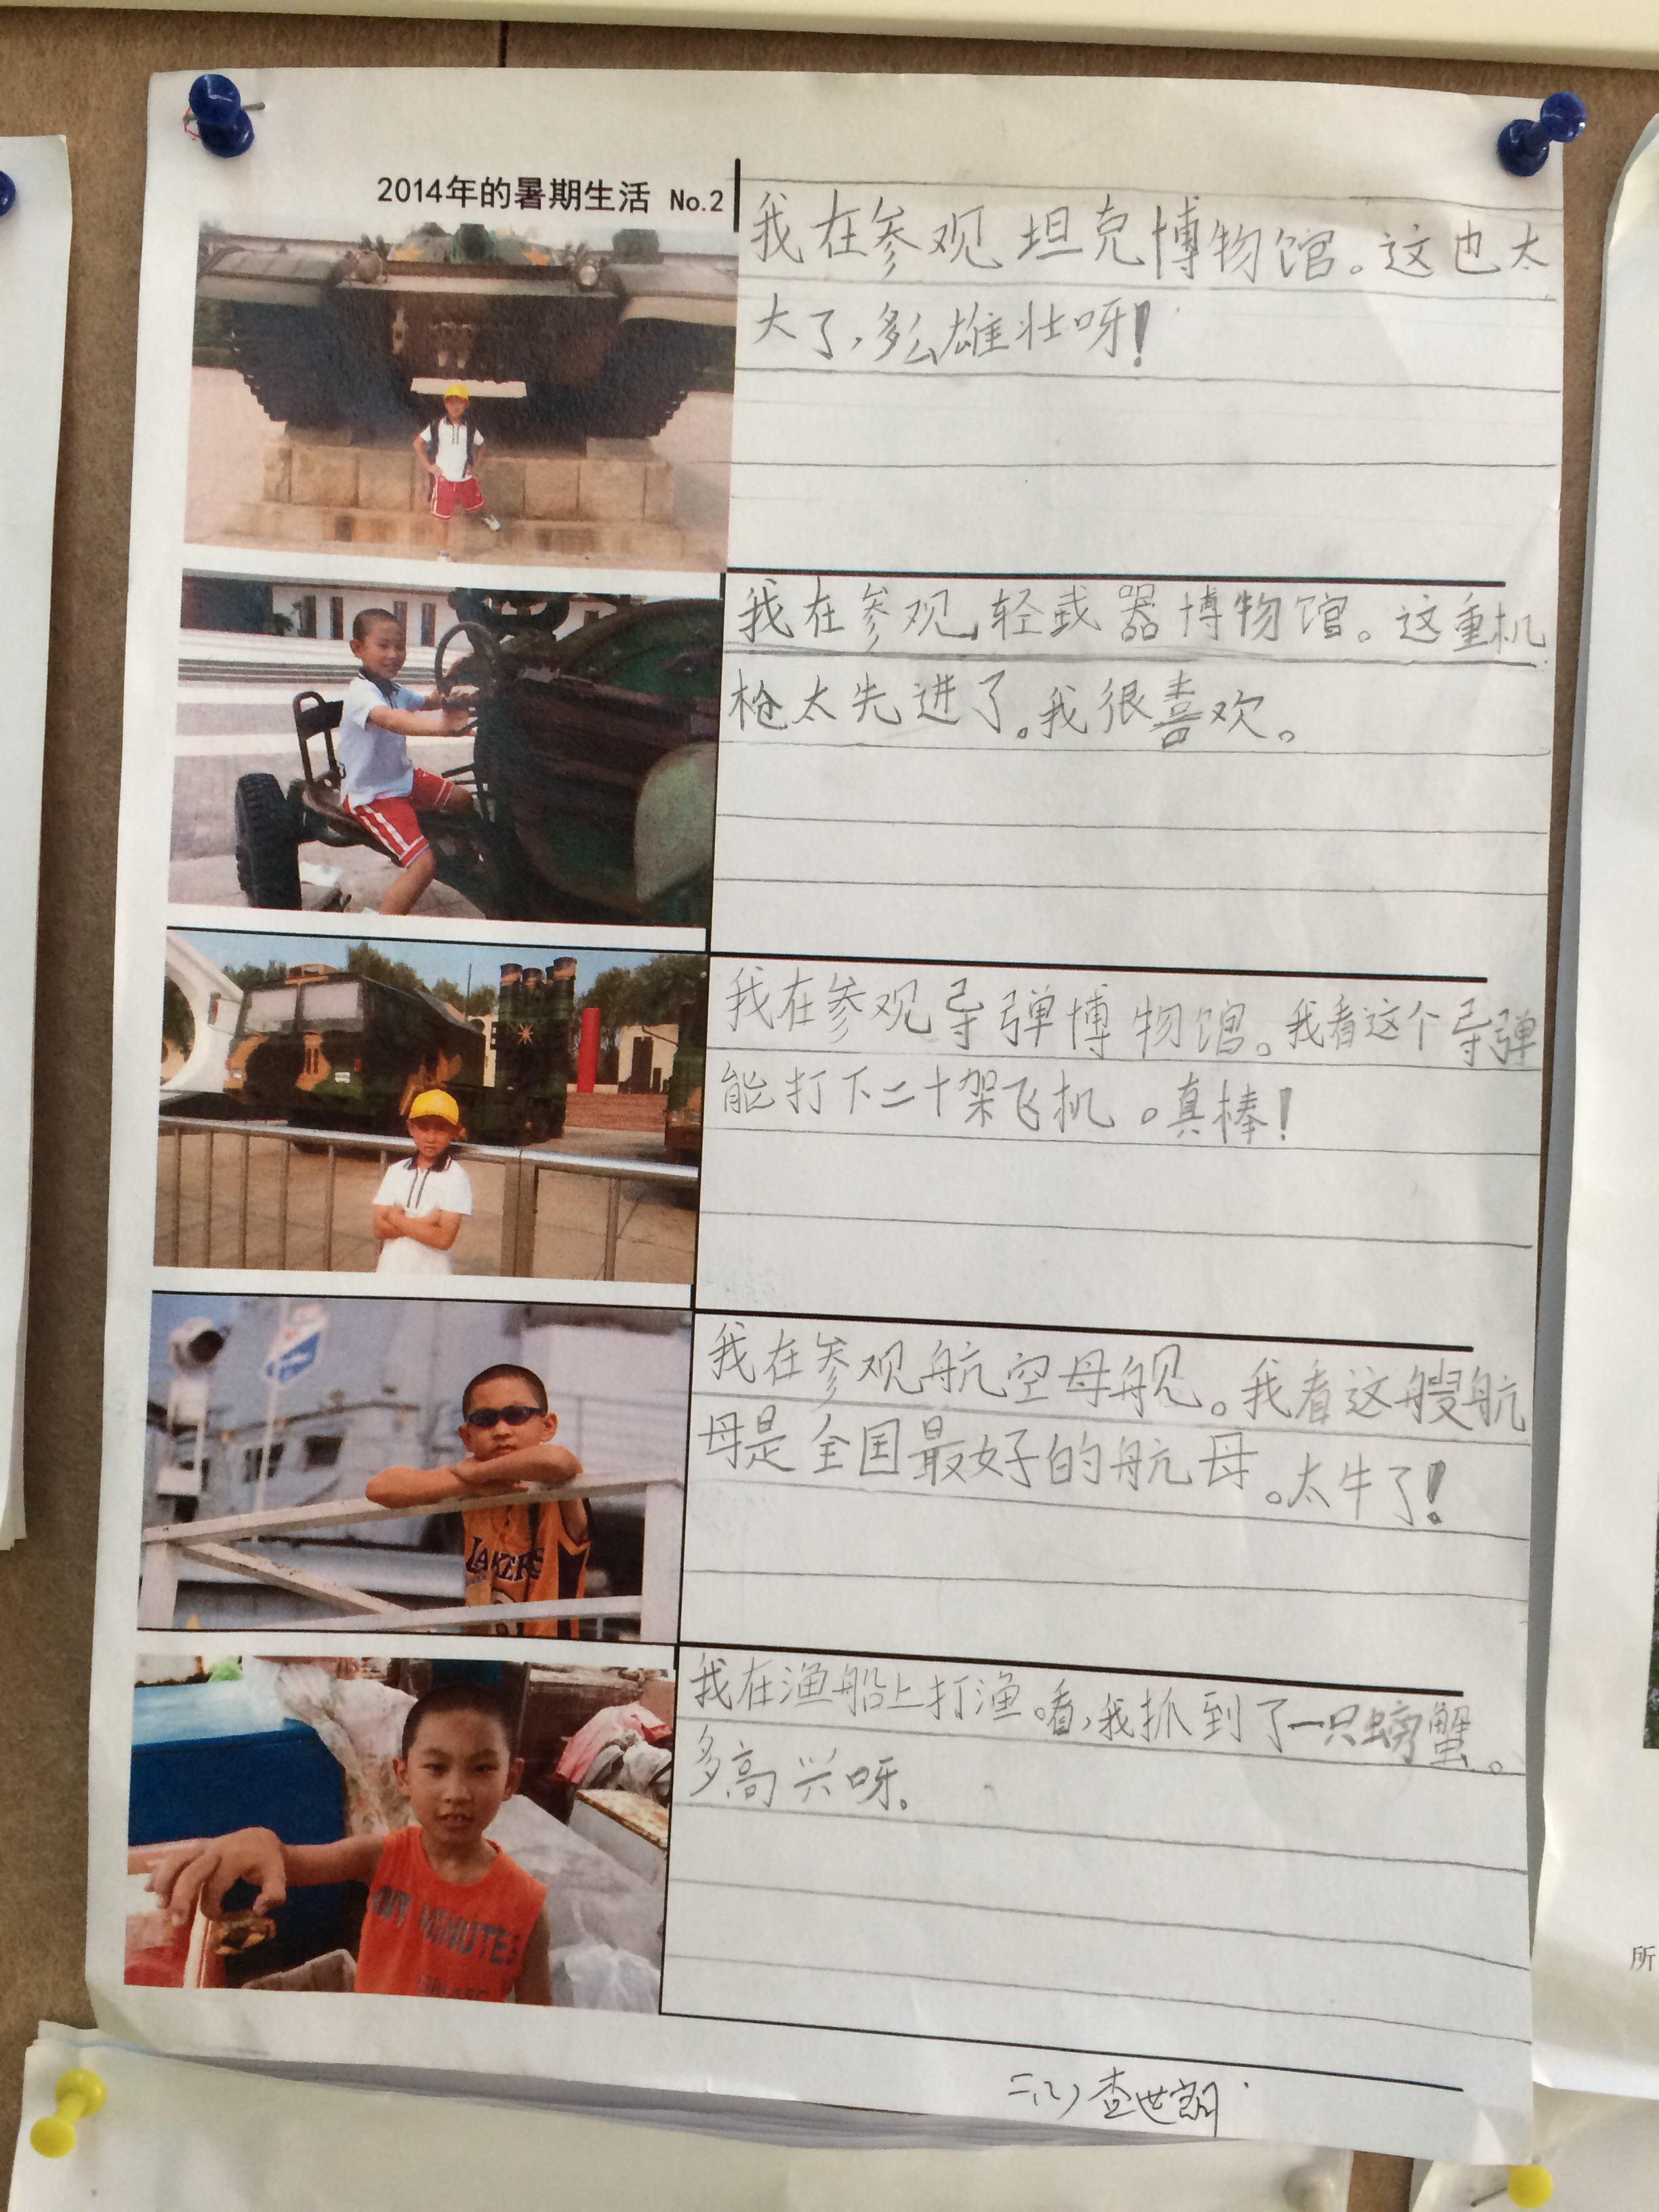 2014年的暑期生活 No.2
我在参观坦克博物馆。这也太
大了，多么雄壮呀！
我在参观轻武器博物馆。这重机
枪太先进了。我很喜欢。
我在参观导弹博物馆。我看这个导弹
能打下二十架飞机。真棒！
我在参观航空母舰。我看这艘航
母是全国最好的航母。太牛了！
LAKERS
我在渔船上打渔。看，我抓到了一只螃蟹。
多高兴呀。
MINUTES
二(2) 查世朗
所